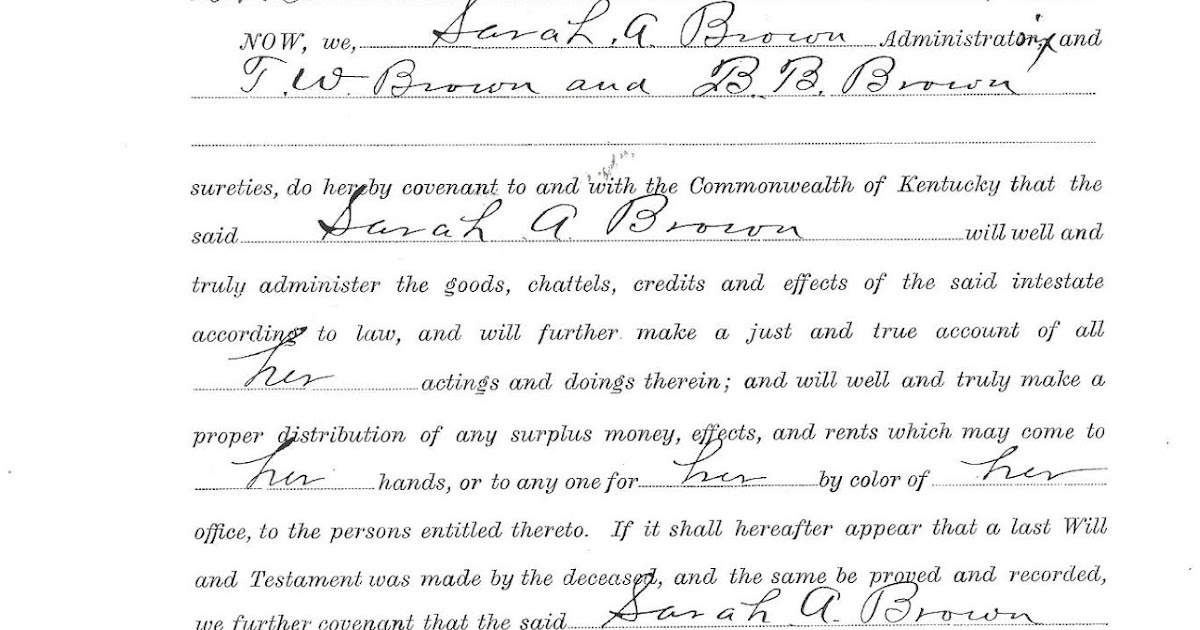 NOW, we, Sarah. A. Brown Administratorix and
T. W. Brown and B. B. Brown
sureties, do hereby covenant to and with the Commonwealth of Kentucky that the
said Sarah A. Brown will well and
truly administer the goods, chattels, credits and effects of the said intestate
according to law, and will further make a just and true account of all
her actings and doings therein; and will well and truly make a
proper distribution of any surplus money, effects, and rents which may come to
her hands, or to any one for her by color of her
office, to the persons entitled thereto. If it shall hereafter appear that a last Will
and Testament was made by the deceased, and the same be proved and recorded,
we further covenant that the said Sarah A. Brown